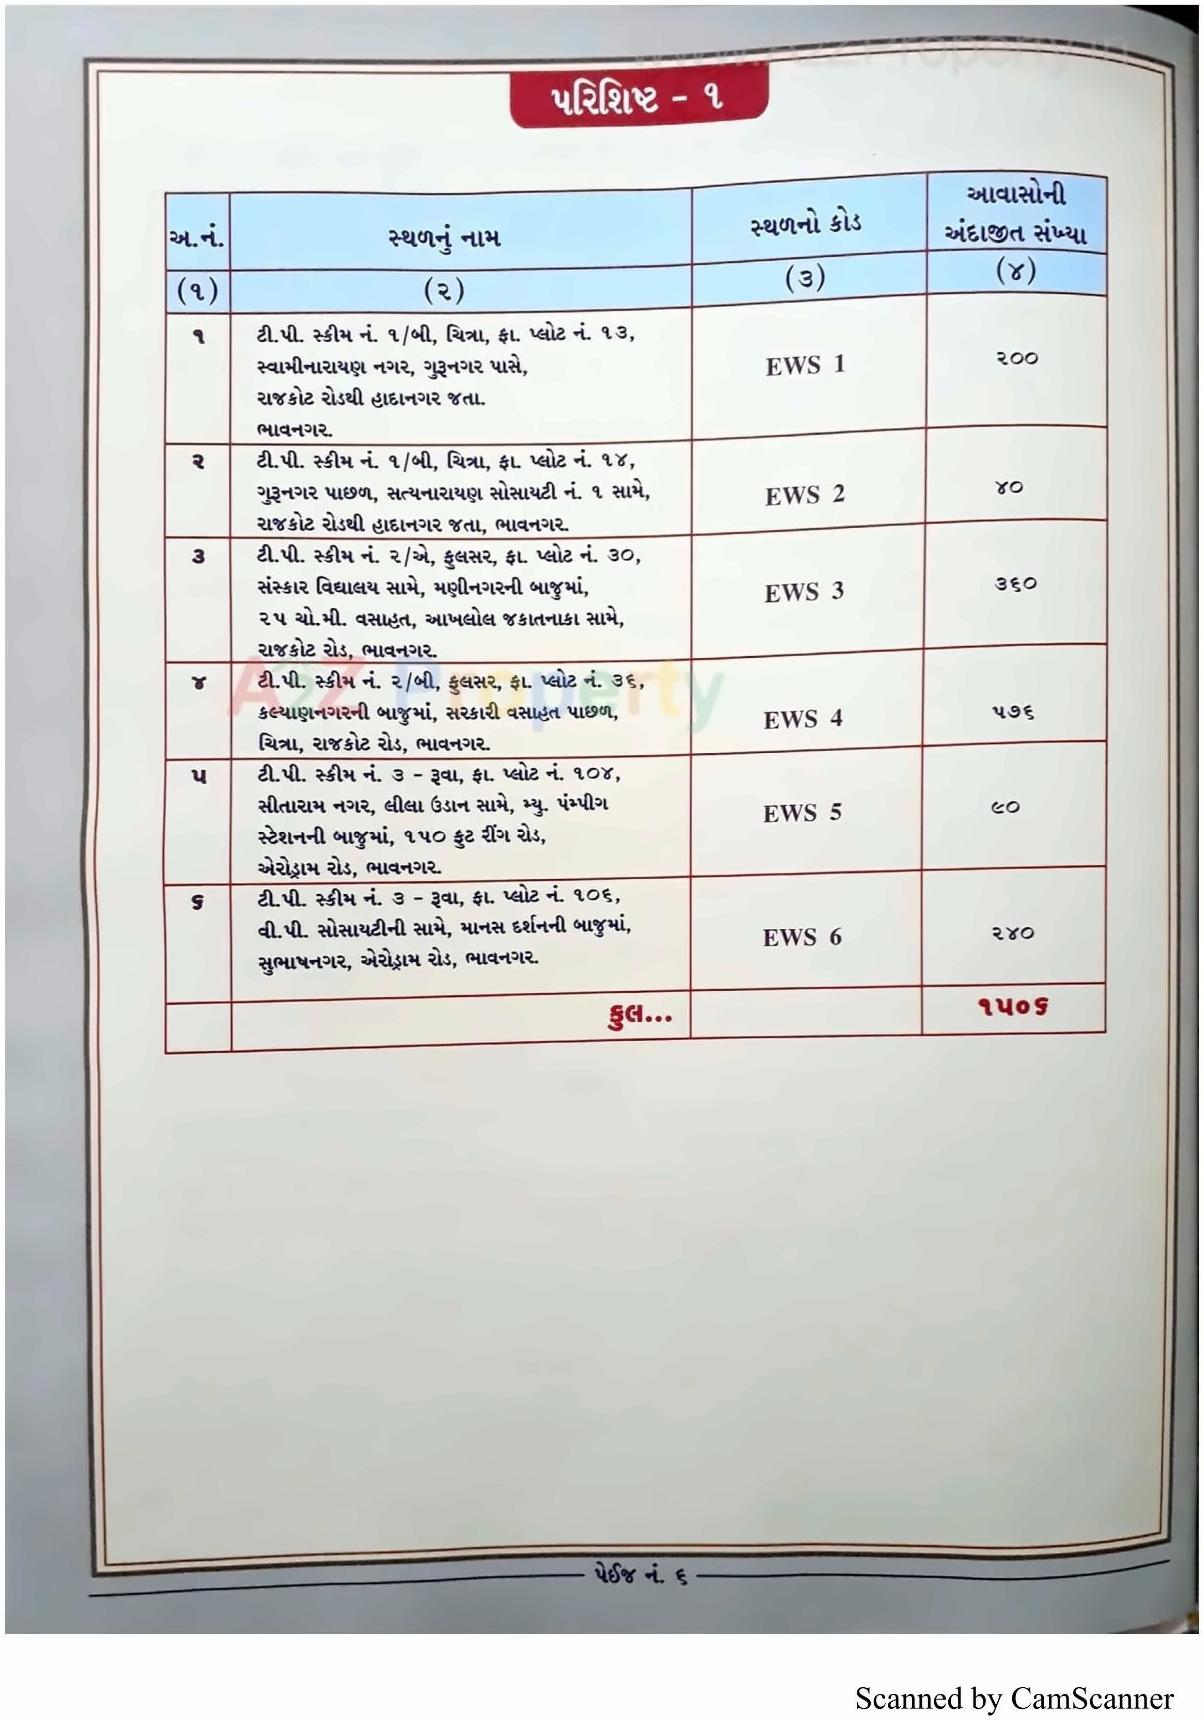 www.A2ZProperty.in
પરિશિષ્ટ - ૧
અ.નં.
સ્થળનું નામ
સ્થળનો કોડ
આવાસોની
અંદાજીત સંખ્યા
(૧)
(૨)
(૩)
(૪)
૧
ટી.પી. સ્કીમ નં. ૧/બી, ચિત્રા, ફા. પ્લોટ નં. ૧૩,
સ્વામીનારાયણ નગર, ગુરૂનગર પાસે,
રાજકોટ રોડથી હાદાનગર જતા.
ભાવનગર.
EWS 1
૨૦૦
૨
ટી.પી. સ્કીમ નં. ૧/બી, ચિત્રા, ફા. પ્લોટ નં. ૧૪,
ગુરૂનગર પાછળ, સત્યનારાયણ સોસાયટી નં. ૧ સામે,
રાજકોટ રોડથી હાદાનગર જતા, ભાવનગર.
EWS 2
૪૦
૩
ટી.પી. સ્કીમ નં. ૨/એ, ફુલસર, ફા. પ્લોટ નં. ૩૦,
સંસ્કાર વિદ્યાલય સામે, મણીનગરની બાજુમાં,
૨૫ ચો.મી. વસાહત, આખલોલ જકાતનાકા સામે,
રાજકોટ રોડ, ભાવનગર.
EWS 3
૩૬૦
A2Z Property
૪
ટી.પી. સ્કીમ નં. ૨/બી, ફુલસર, ફા. પ્લોટ નં. ૩૬,
કલ્યાણનગરની બાજુમાં, સરકારી વસાહત પાછળ,
ચિત્રા, રાજકોટ રોડ, ભાવનગર.
EWS 4
૫૭૬
૫
ટી.પી. સ્કીમ નં. ૩ - રૂવા, ફા. પ્લોટ નં. ૧૦૪,
સીતારામ નગર, લીલા ઉડાન સામે, મ્યુ. પંમ્પીગ
સ્ટેશનની બાજુમાં, ૧૫૦ ફુટ રીંગ રોડ,
એરોડ્રામ રોડ, ભાવનગર.
EWS 5
૯૦
૬
ટી.પી. સ્કીમ નં. ૩ - રૂવા, ફા. પ્લોટ નં. ૧૦૬,
વી.પી. સોસાયટીની સામે, માનસ દર્શનની બાજુમાં,
સુભાષનગર, એરોડ્રામ રોડ, ભાવનગર.
EWS 6
૨૪૦
કુલ...
૧૫૦૬
પેઈજ નં. ૬
Scanned by CamScanner